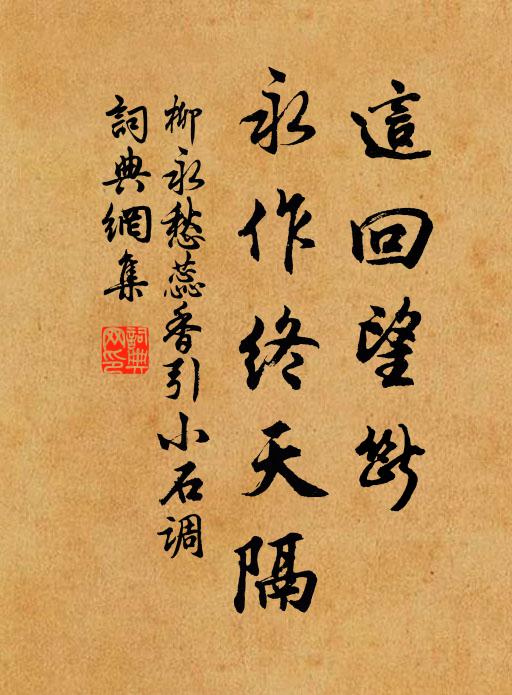 這回望斷
永作終天隔
柳永愁蕊香引小石調
詞典網集
詞典網印